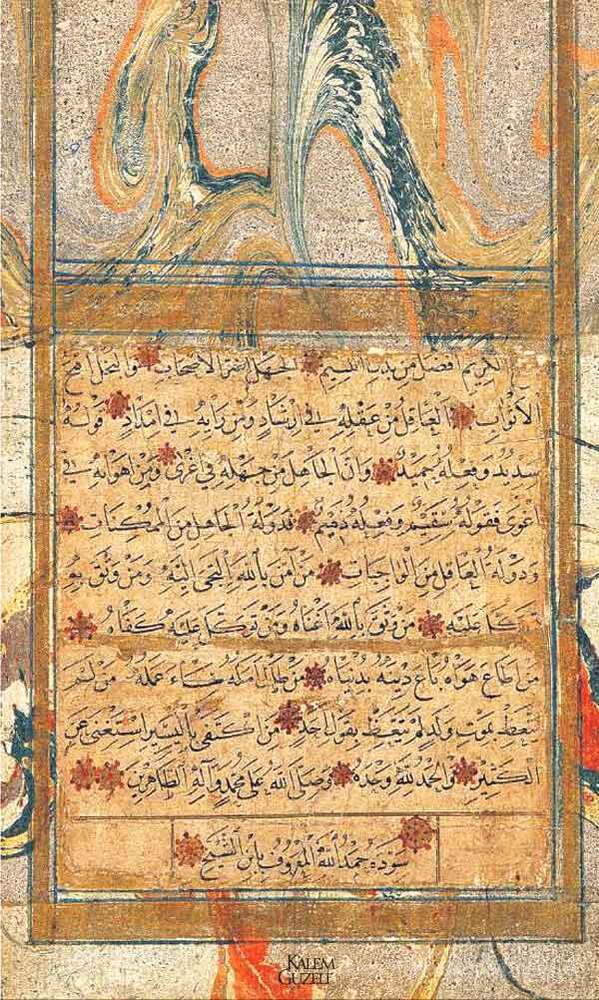 الكريم افضل من يد اللئيم الجهل اضر الاصحاب والبخل اقبح
الابواب العاقل من عقله في ارشاد ومن رايه في امداد قوله
سديد وفعله حميد وان الجاهل من جهله في اغرى ومن اهوائه في
اغوى فقوله سقيم وفعله ذميم فدولة الجاهل من الممكنات
ودولة العاقل من الواجبات من آمن بالله التجى اليه ومن وثق به
توكل عليه من وثق بالله اغناه ومن توكل عليه كفاه
من اطاع هواه باع دينه بدنياه من طال امله ساء عمله من لم
يتعظ بموت ولد لم يتعظ بقول احد من اكتفى باليسير استغنى عن
الكثير والحمد لله وحده وصلى الله على محمد وآله الطاهرين
سوده حمد الله المعروف بابن الشيخ
KALEM
GUZELI